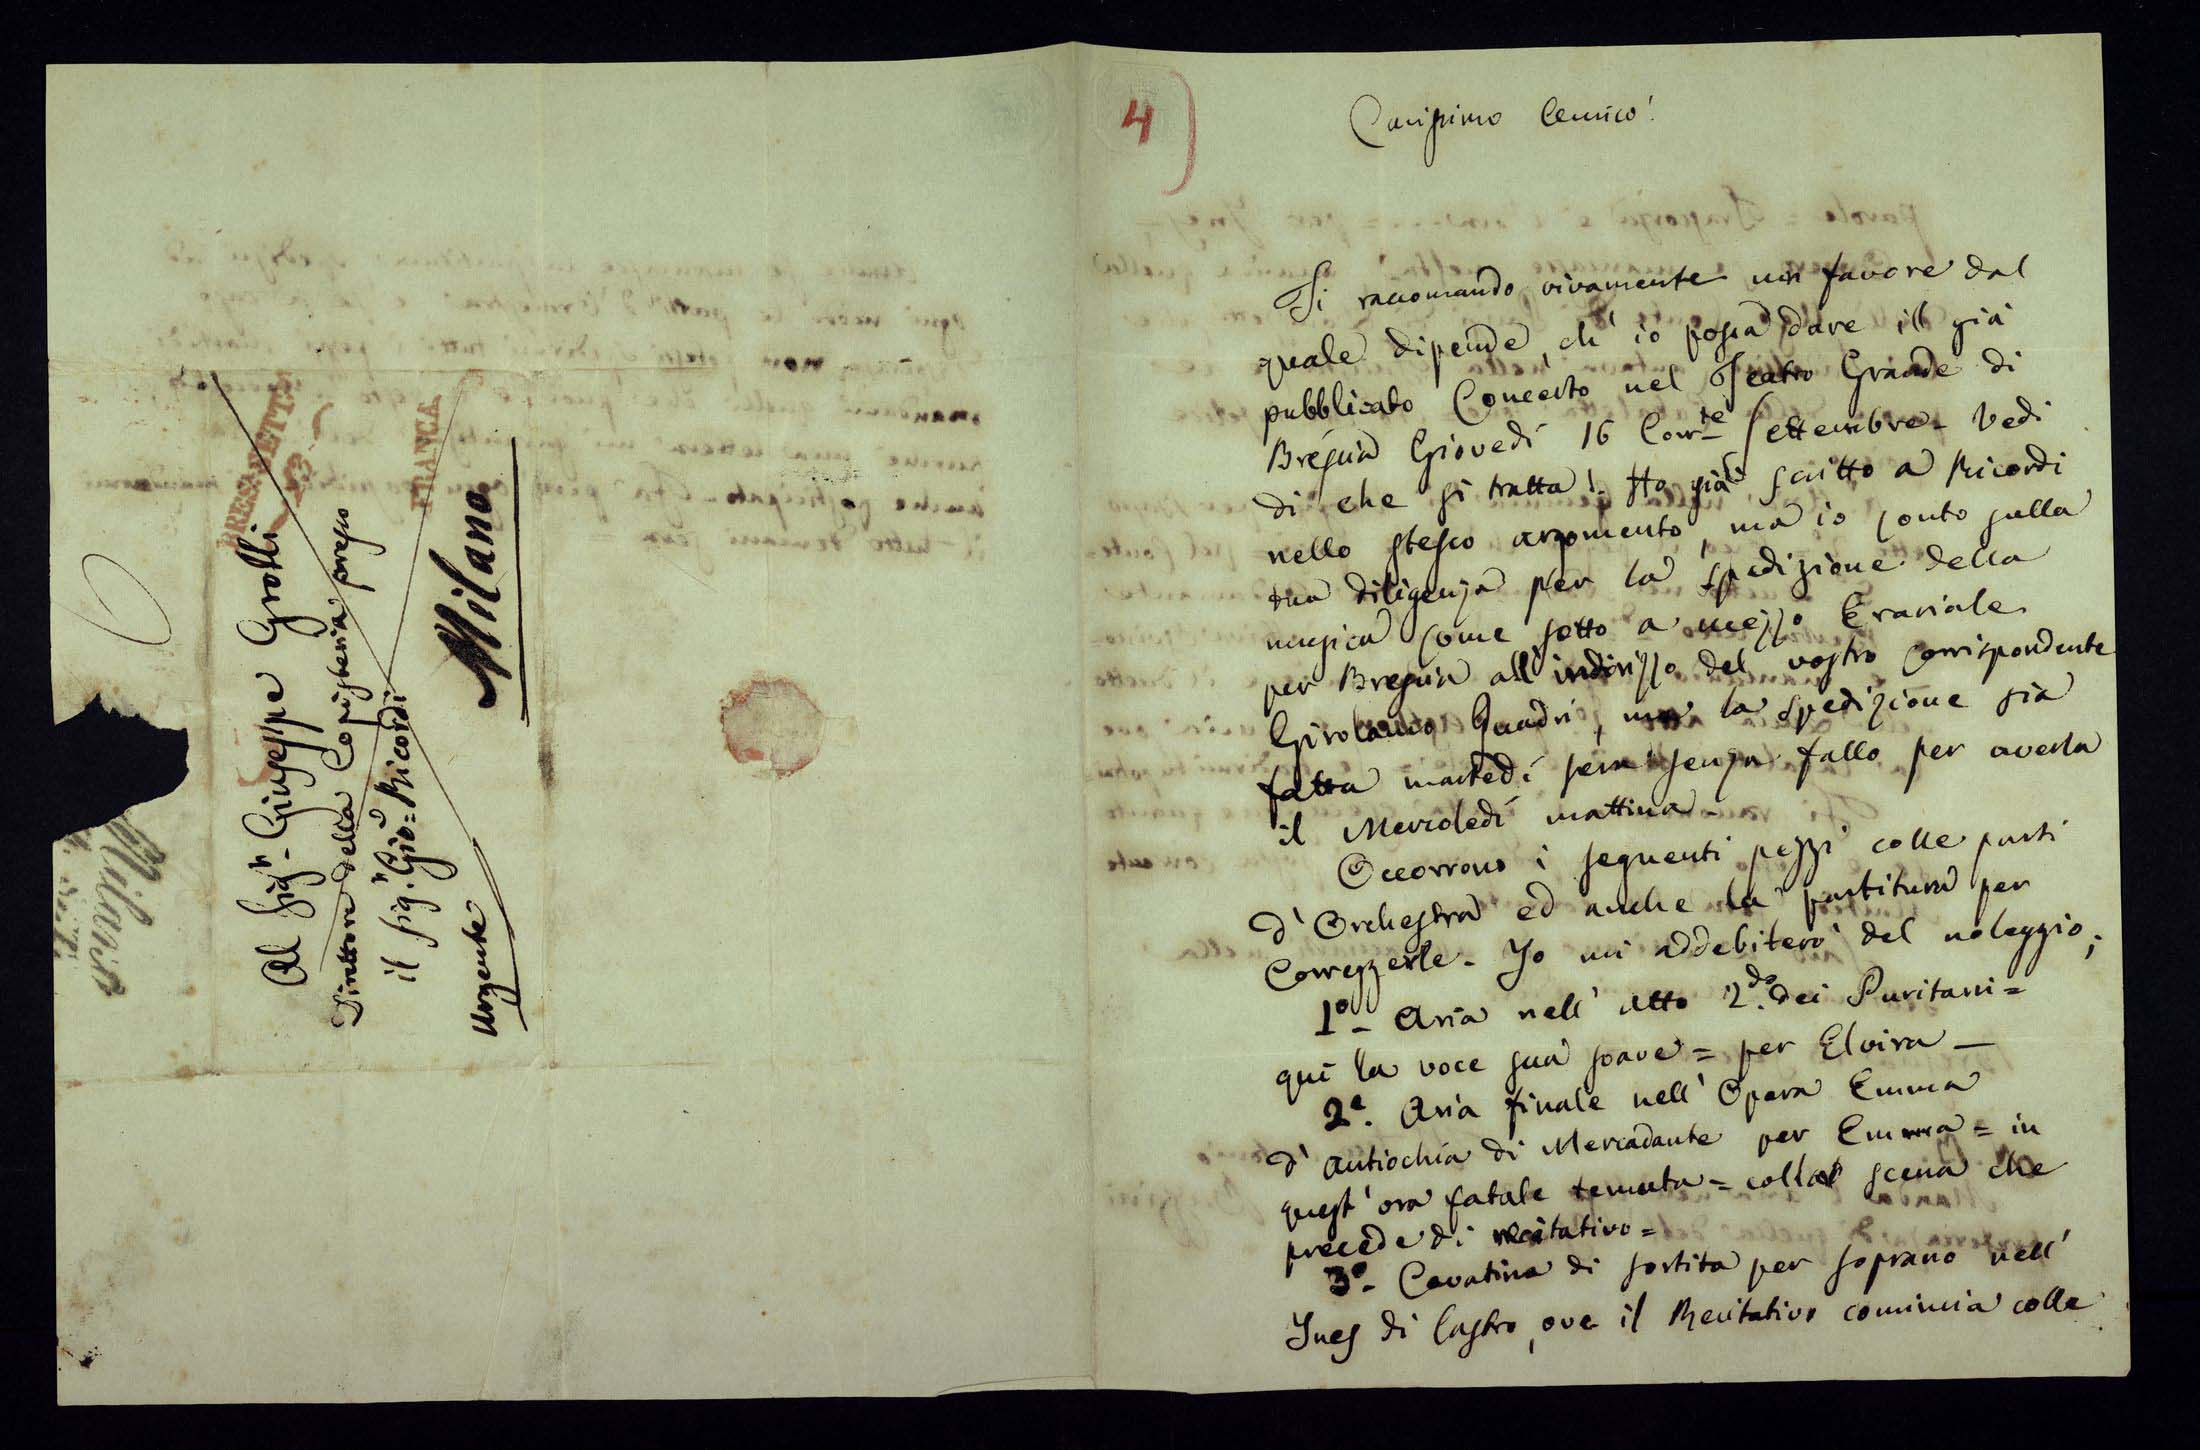 Al Sigr. Giuseppe Grolli
Direttore della Copisteria presso
il Sigr. Gio= Ricordi
Urgente
Milano
FRANCA
Milano
4)
Carissimo Amico!
Ti raccomando vivamente un favore dal
quale dipende, ch' io possa dare il già
pubblicato Concerto nel Teatro Grande di
Brescia Giovedì 16 Corrte Settembre - Vedi
di che si tratta! - Ho già scritto a Ricordi
nello stesso argomento, ma io conto sulla
tua diligenza per la spedizione della
musica come sotto a mezzo Erariale
per Brescia all' indirizzo del vostro corrispondente
Girolamo Quadri, ma la spedizione sia
fatta martedì sera senza fallo per averla
il Mercoledì mattina -
Occorrono i seguenti pezzi colle parti
d' Orchestra ed anche la partitura per
Correggerle - Io mi addebiterò del noleggio;
1º - Aria nell' atto 2.do dei Puritani =
qui la voce sua soave = per Elvira -
2ª. Aria finale nell' Opera Emma
d' Antiochia di Mercadante per Emma = in
quest' ora fatale temuta = colla scena che
precede di recitativo =
3º - Cavatina di sortita per soprano nell'
Ines di Castro, ove il Recitativo comincia colle